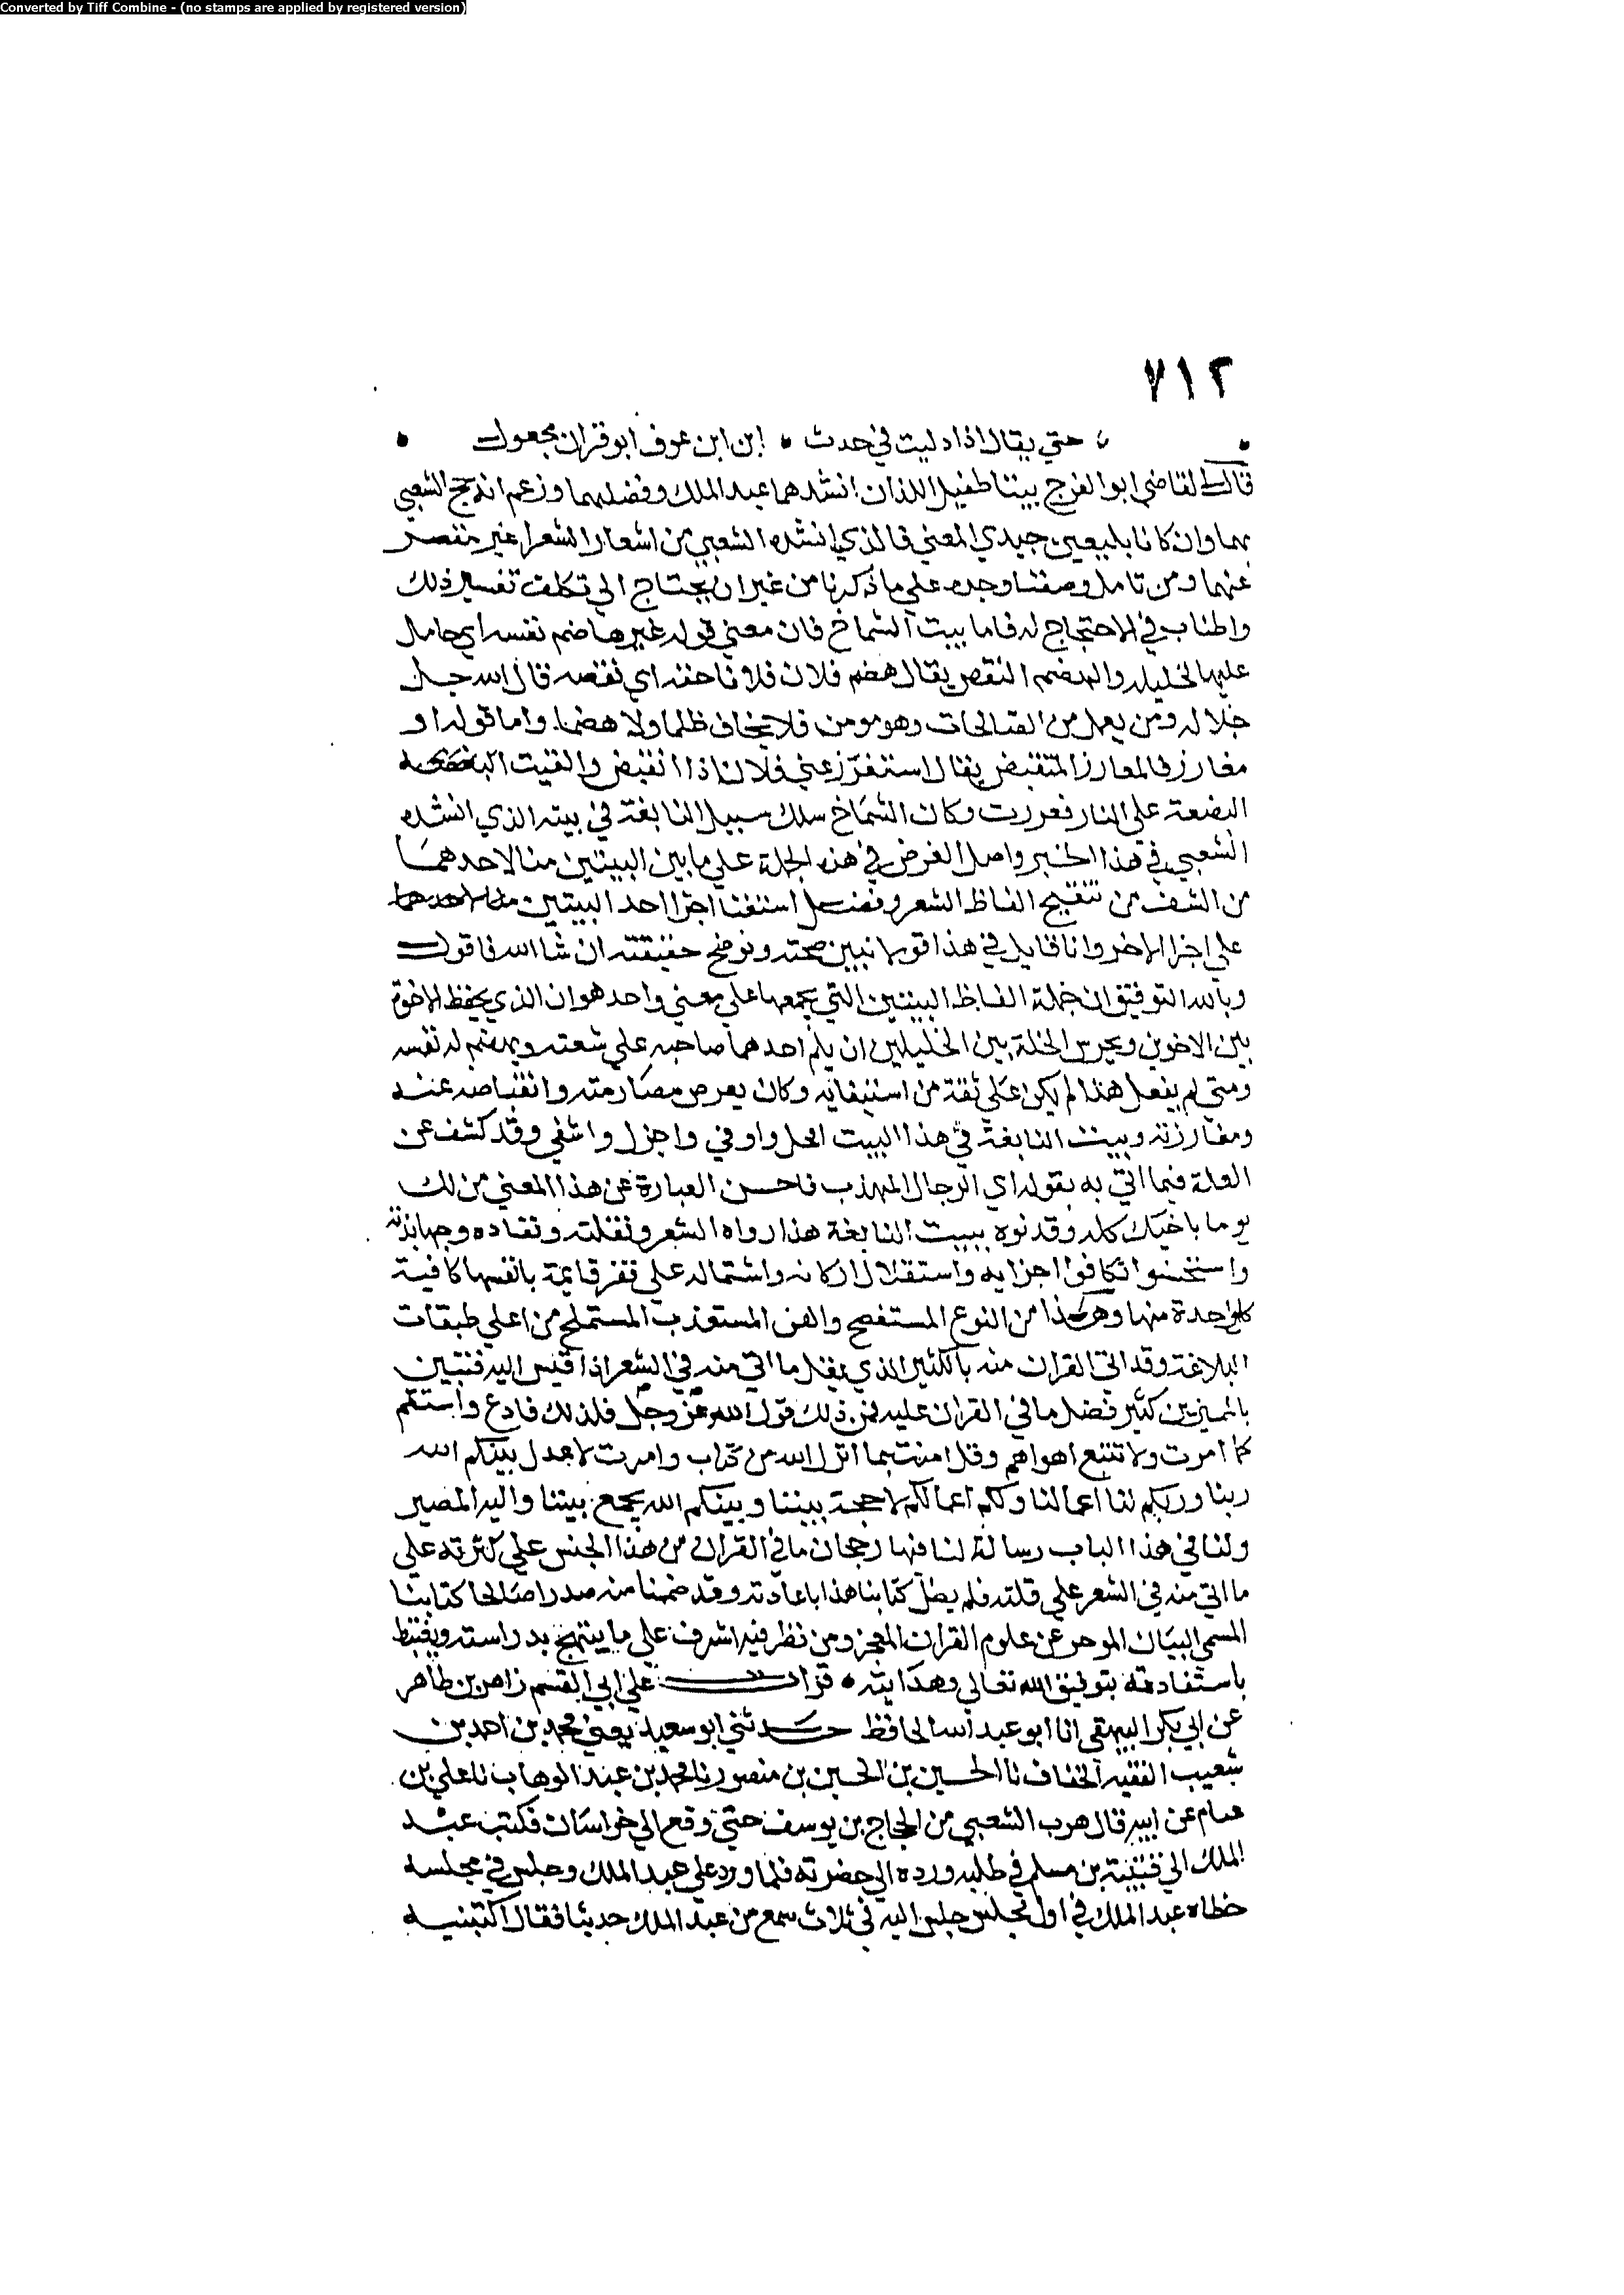 Converted by Tiff Combine - (no stamps are applied by registered version)
٧١٢
حتي يقال اذا دليت في حدث • اين ابن عوف ابو قران مجعول
قال القاضي ابو الفرج بيتا طفيل اللذان انشدهما عبد الملك وفضلهما وزعم انه حج الشعبي
بهما وان كانا بليغين جيدي المعني فالذي انشده الشعبي من اشعار الشعرا غير مقصر
عنهما ومن تامل وصفنا وجده علي ما ذكرنا من غير ان يحتاج الي تكلف تفسير ذلك
واطناب في الاحتجاج له فاما بيت الشماخ فان معني قوله غير هاضم نفسه اي حامل
عليها لخليله والهضم النقص يقال هضم فلان فلانا حقه اي نقصه قال الله جل
جلاله ومن يعمل من الصالحات وهو مومن فلا يخاف ظلما ولا هضما واما قوله او
معارز فالمعارز المتقبض يقال استعرز عني فلان اذا انقبض والقيت
البضعة علي النار فعرزت وكان الشماخ سلك سبيل النابغة في بيته الذي انشده
الشعبي في هذا الخبر واصل الغرض في هذه الجملة علي ما بين البيتين منا لاحدهما
من الشف من تنقيح الفاظ الشعر وفضل استغنا اجزا احد البيتين
علي اجزا الاخر وانا قايل في هذا قولا نبين صحته ونوضح حقيقته ان شا الله فاقول
وبالله التوفيق ان جملة الفاظ البيتين التي يجمعها علي معني واحد هو ان الذي يحفظ الاخوة
بين الاخوين ويحرس الخلة بين الخليلين ان يلم احدهما صاحبه علي شعثه ويهضم له نفسه
ومتي لم يفعل هذا لم يكن علي ثقة من استبقايه وكان بعرض مصارمته وانقباضه عنه
ومعارزته وبيت النابغة في هذا البيت اكمل واوفي واجزل واشفي وقد كشف عن
العلة فيما اتي به بقوله اي الرجال المهذب فاحسن العبارة عن هذا المعني من لك
يوما باخيك كله وقد نوه ببيت النابغة هذا رواه الشعر ونقلته ونقاده وجهابذته
واستحسنوا تكافوا اجزايه واستقلال اركانه واشتماله علي فقر قايمة بانفسها كافية
كل واحدة منها وهذا من النوع المستفصح والفن المستعذب المستملح من اعلي طبقات
البلاغة وقد اتي القران منه بالكثير الذي يقل ما اتي منه في الشعر اذا قيس اليه فتبين
بالميزين كثير فضل ما في القران عليه فمن ذلك قول الله عز وجل فلذلك فادع واستقم
كما امرت ولا تتبع اهواهم وقل امنت بما انزل الله من كتاب وامرت لاعدل بينكم الله
ربنا وربكم لنا اعمالنا ولكم اعمالكم لا حجة بيننا وبينكم الله يجمع بيننا واليه المصير
ولنا في هذا الباب رسالة لنا فيها رجحان ما في القران من هذا الجنس علي كثرته علي
ما اتي منه في الشعر علي قلته فلم يطل كتابنا هذا باعادته وقد ضمنا منه صدرا صالحا كتابنا
المسمي البيان الموجز عن علوم القران المعجز ومن نظر فيه اشرف علي ما يبتهج بدراسته ويغتبط
باستفادته بتوفيق الله تعالي وهدايته • قرات علي ابي القسم زاهر بن طاهر
عن ابي بكر البيهقي انا ابو عبد الله الحافظ حدثني ابو سعيد يعني محمد بن احمد بن
شعيب الفقيه الخفاف نا الحسين بن الحسين بن منصور نا محمد بن عبد الوهاب نا علي بن
عثام عن ابيه قال هرب الشعبي من الحجاج بن يوسف حتي وقع الي خراسان فكتب عبد
الملك الي قتيبة بن مسلم في طلبه ورده الي حضرته فلما ورد علي عبد الملك وجلس في مجلسه
خطاه عبد الملك في اول مجلس جلس اليه في ثلاث سمع من عبد الملك حديثا فقال اكتبنيه